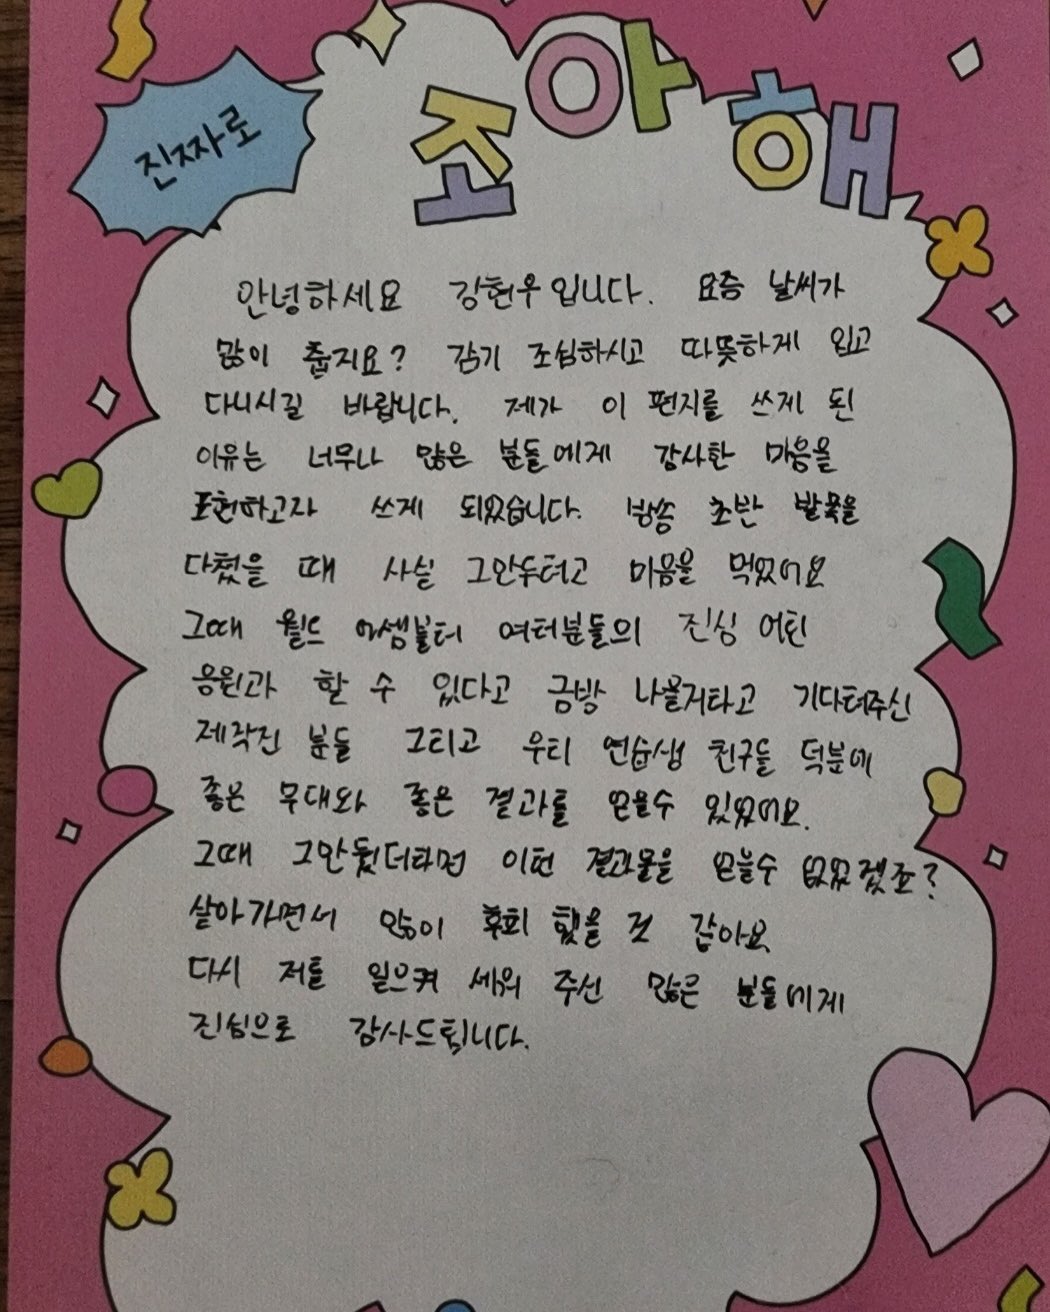 진짜로
조아해
안녕하세요 강현우입니다. 요즘 날씨가
많이 춥지요? 감기 조심하시고 따뜻하게 입고
다니시길 바랍니다. 제가 이 편지를 쓰게 된
이유는 너무나 많은 분들에게 감사한 마음을
표현하고자 쓰게 되었습니다. 방송 초반 발목을
다쳤을 때 사실 그만두려고 마음을 먹었어요
그때 월드 어셈블러 여러분들의 진심 어린
응원과 할 수 있다고 금방 나을거라고 기다려주신
제작진 분들 그리고 우리 연습생 친구들 덕분에
좋은 무대와 좋은 결과를 얻을수 있었어요.
그때 그만뒀더라면 이런 결과물을 얻을수 없었겠죠?
살아가면서 많이 후회 했을 것 같아요
다시 저를 일으켜 세워 주신 많은 분들에게
진심으로 감사드립니다.